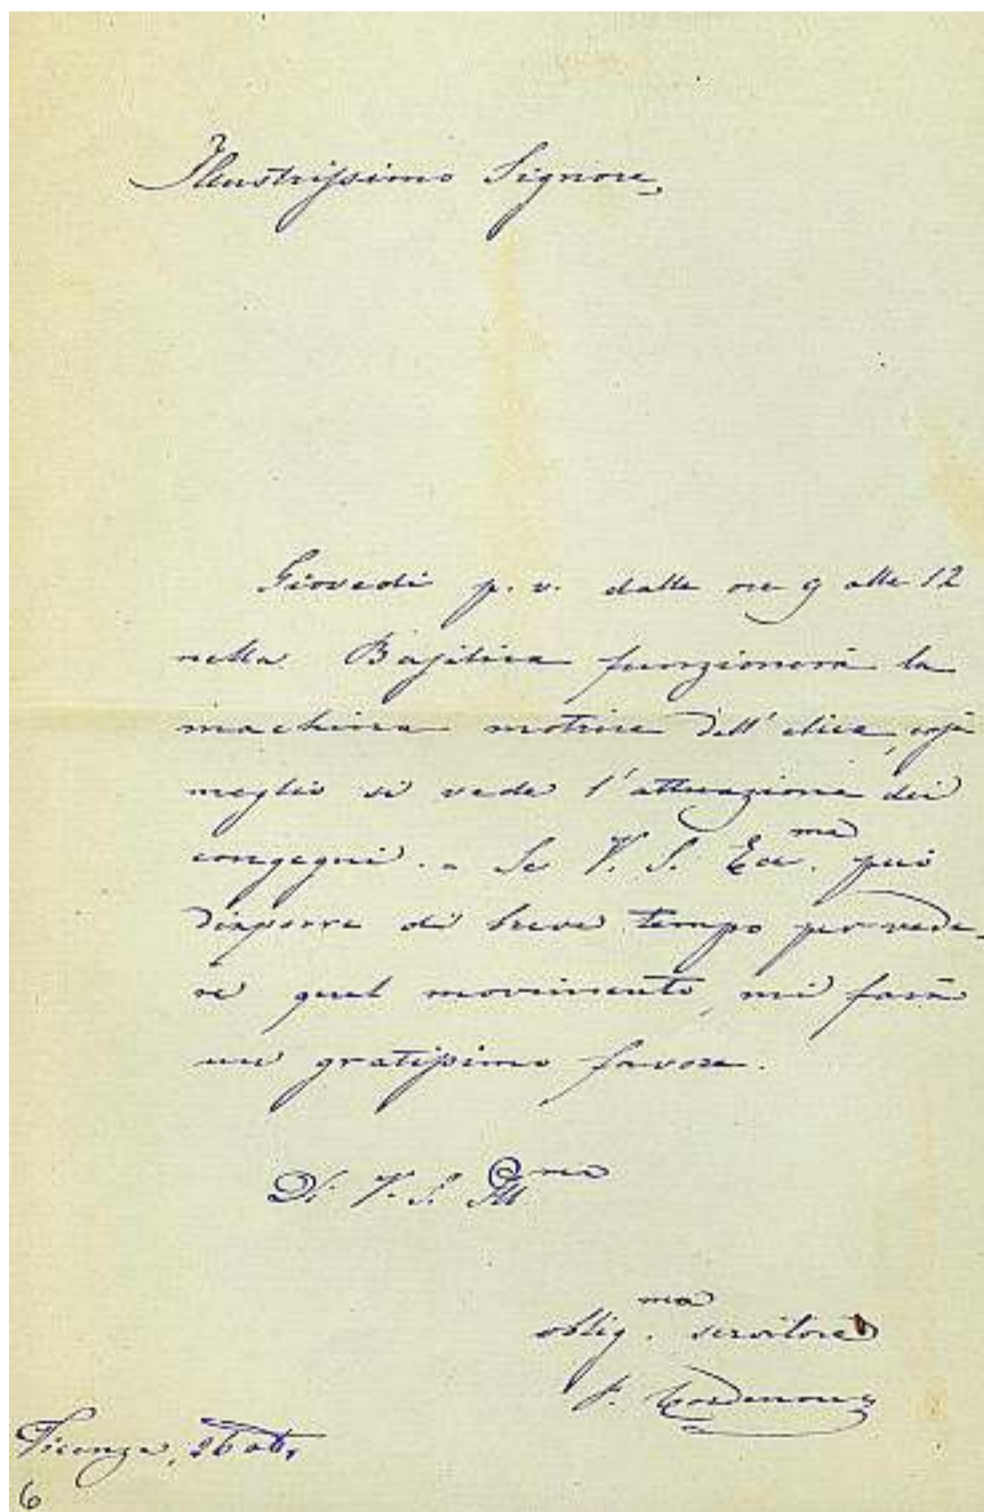 Illustrissimo Signore,
Giovedì p. v. dalle ore 9 alle 12
nella Basilica funzionerà la
machina motrice dell'elica, così
meglio si vede l'attuazione dei
congegni. - Se V. S. Ecc.ma può
disporre di breve tempo per vede-
re quel movimento, mi farà
un gratissimo favore.
Di V. S. Ill.ma
obblig.mo servitore
P. Cordenons
Vicenza, 26
6